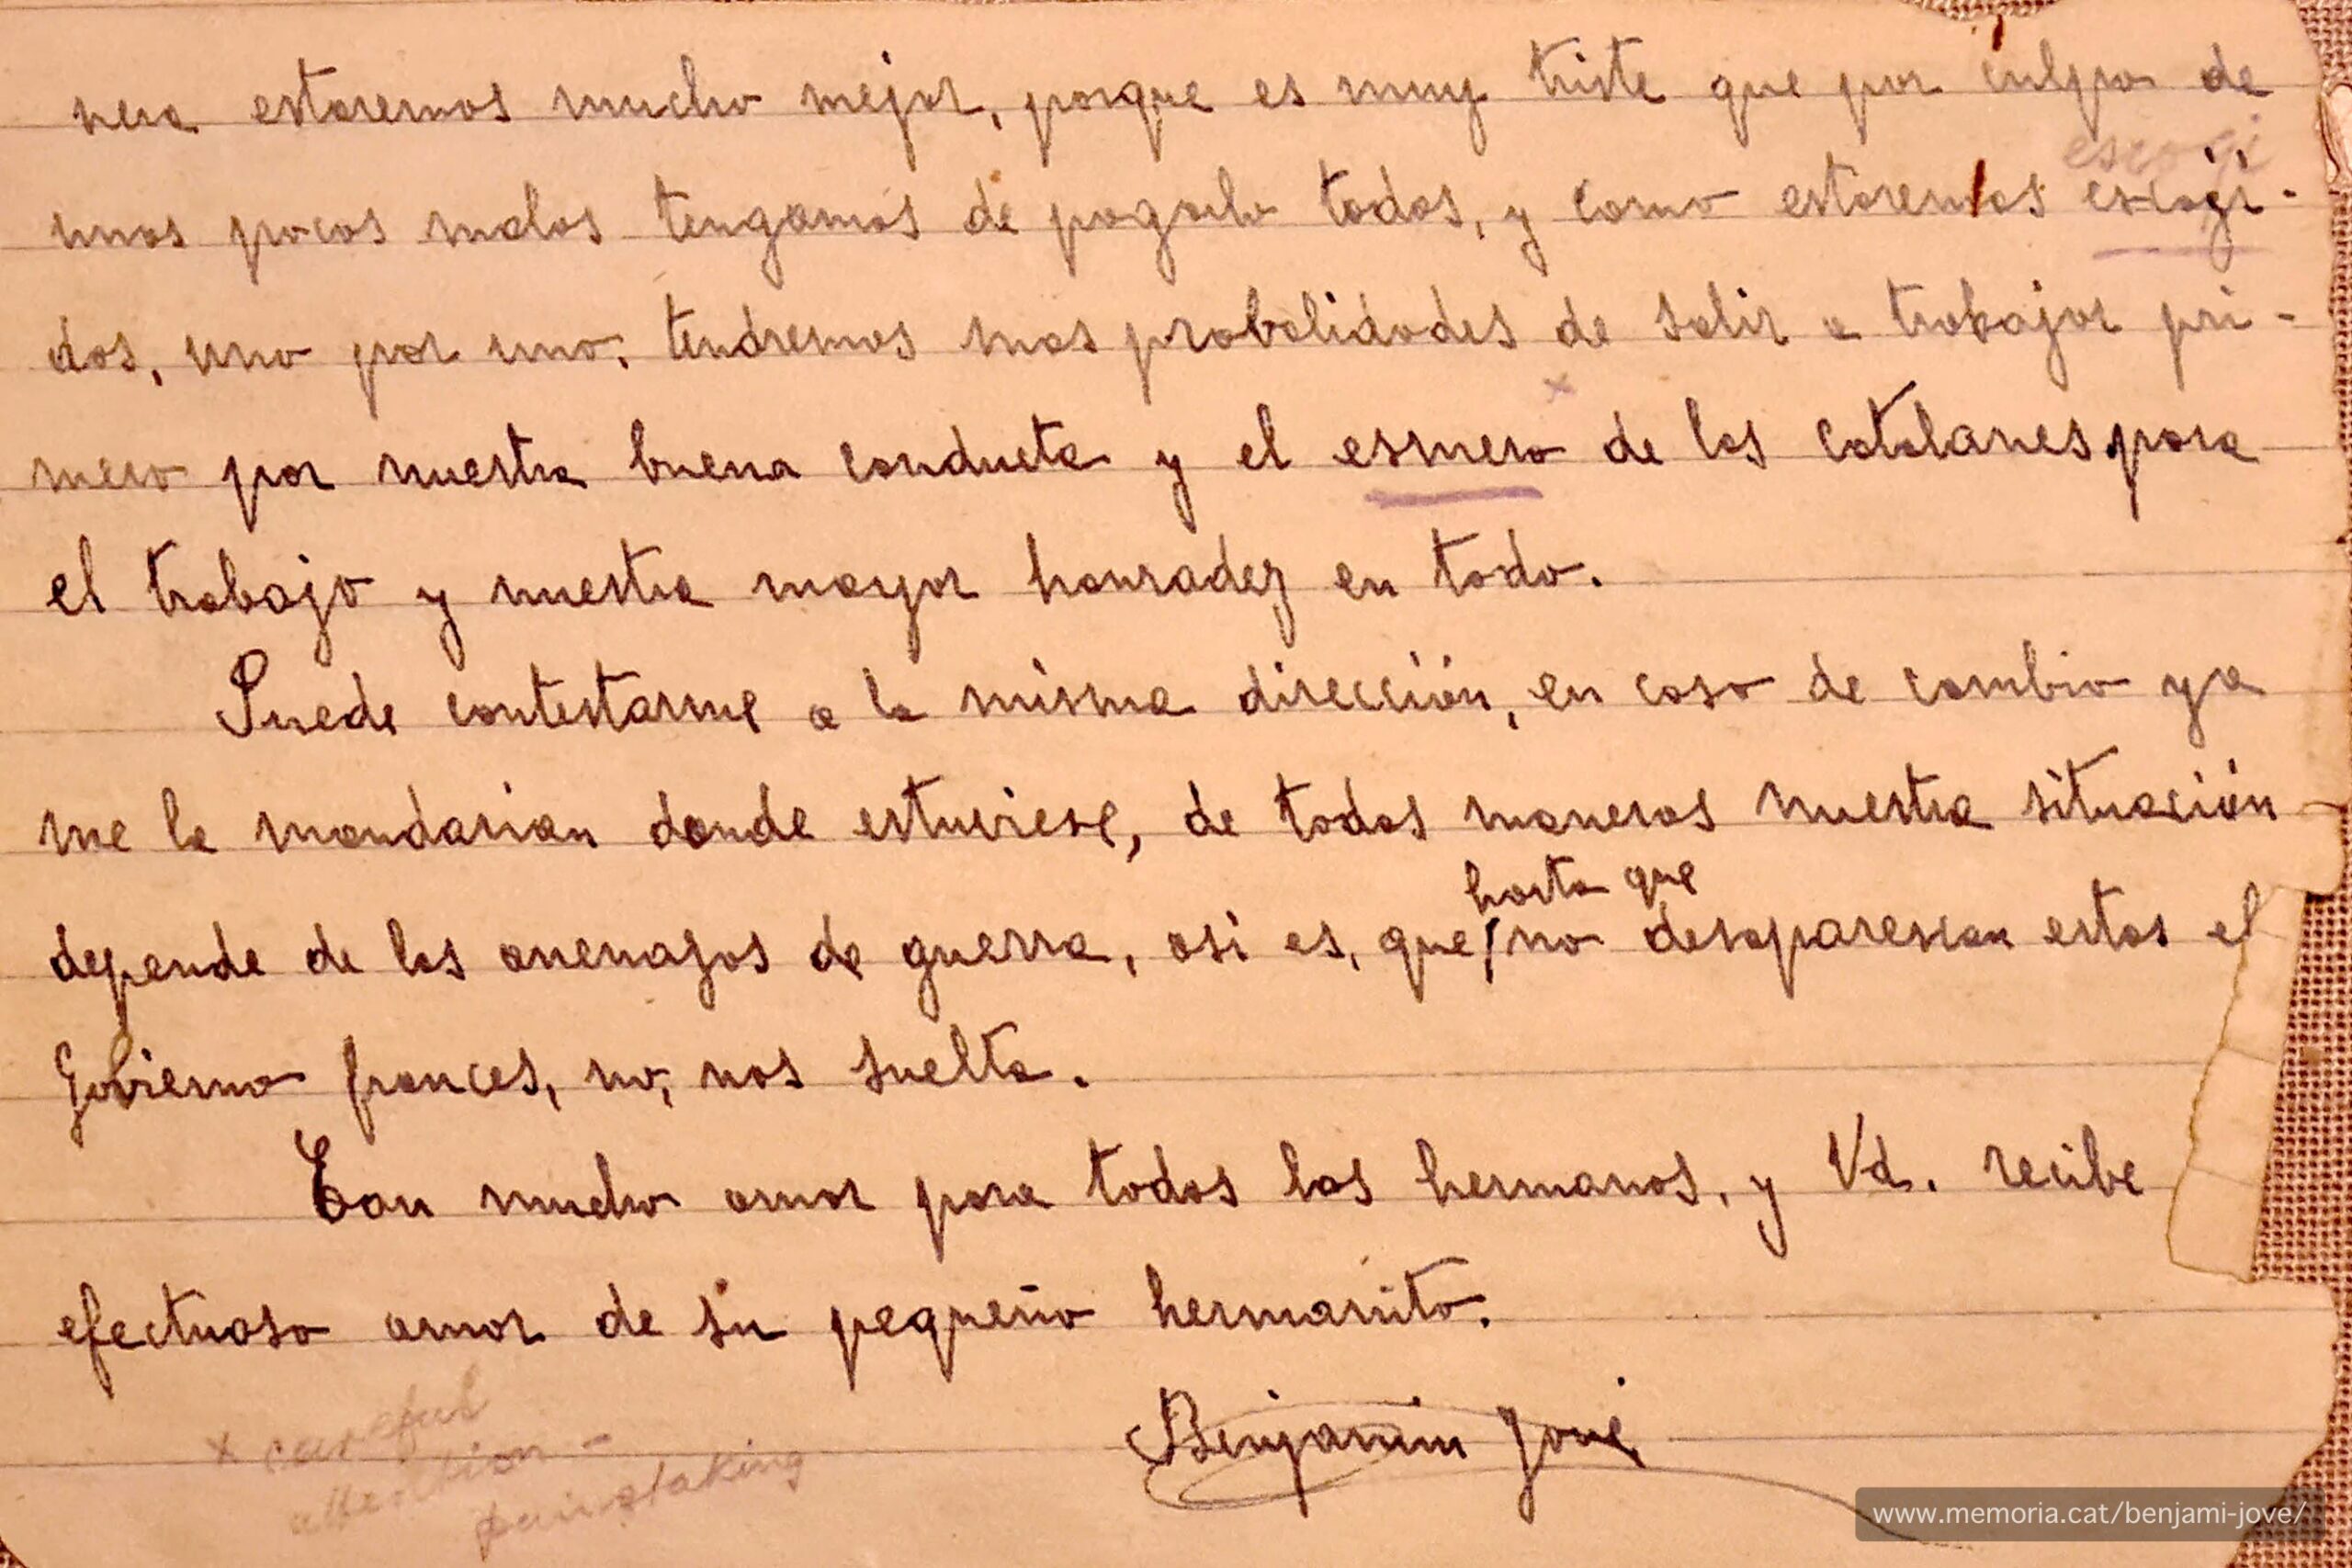 nera estaremos mucho mejor, porque es muy triste que por culpa de
escogi
unos pocos malos tengamos de pagarlo todos, y como estaremos escogi-
dos, uno por uno, tendremos mas probalidades de salir a trabajar pri-
mero por nuestra buena conducta y el esmero de los catalanes para
el trabajo y nuestra mayor honradez en todo.
Puede contestarme a la misma dirección, en caso de cambio ya
me la mandarian donde estuviese, de todas maneras nuestra situación
hasta que
depende de las amenazas de guerra, asi es, que no desaparescan estas el
Gobierno frances, no, nos suelta.
Con mucho amor para todos los hermanos, y Vd. recibe
efectuoso amor de su pequeño hermanito.
Benjamin Jové
x careful
attention -
painstaking
www.memoria.cat/benjami-jove/